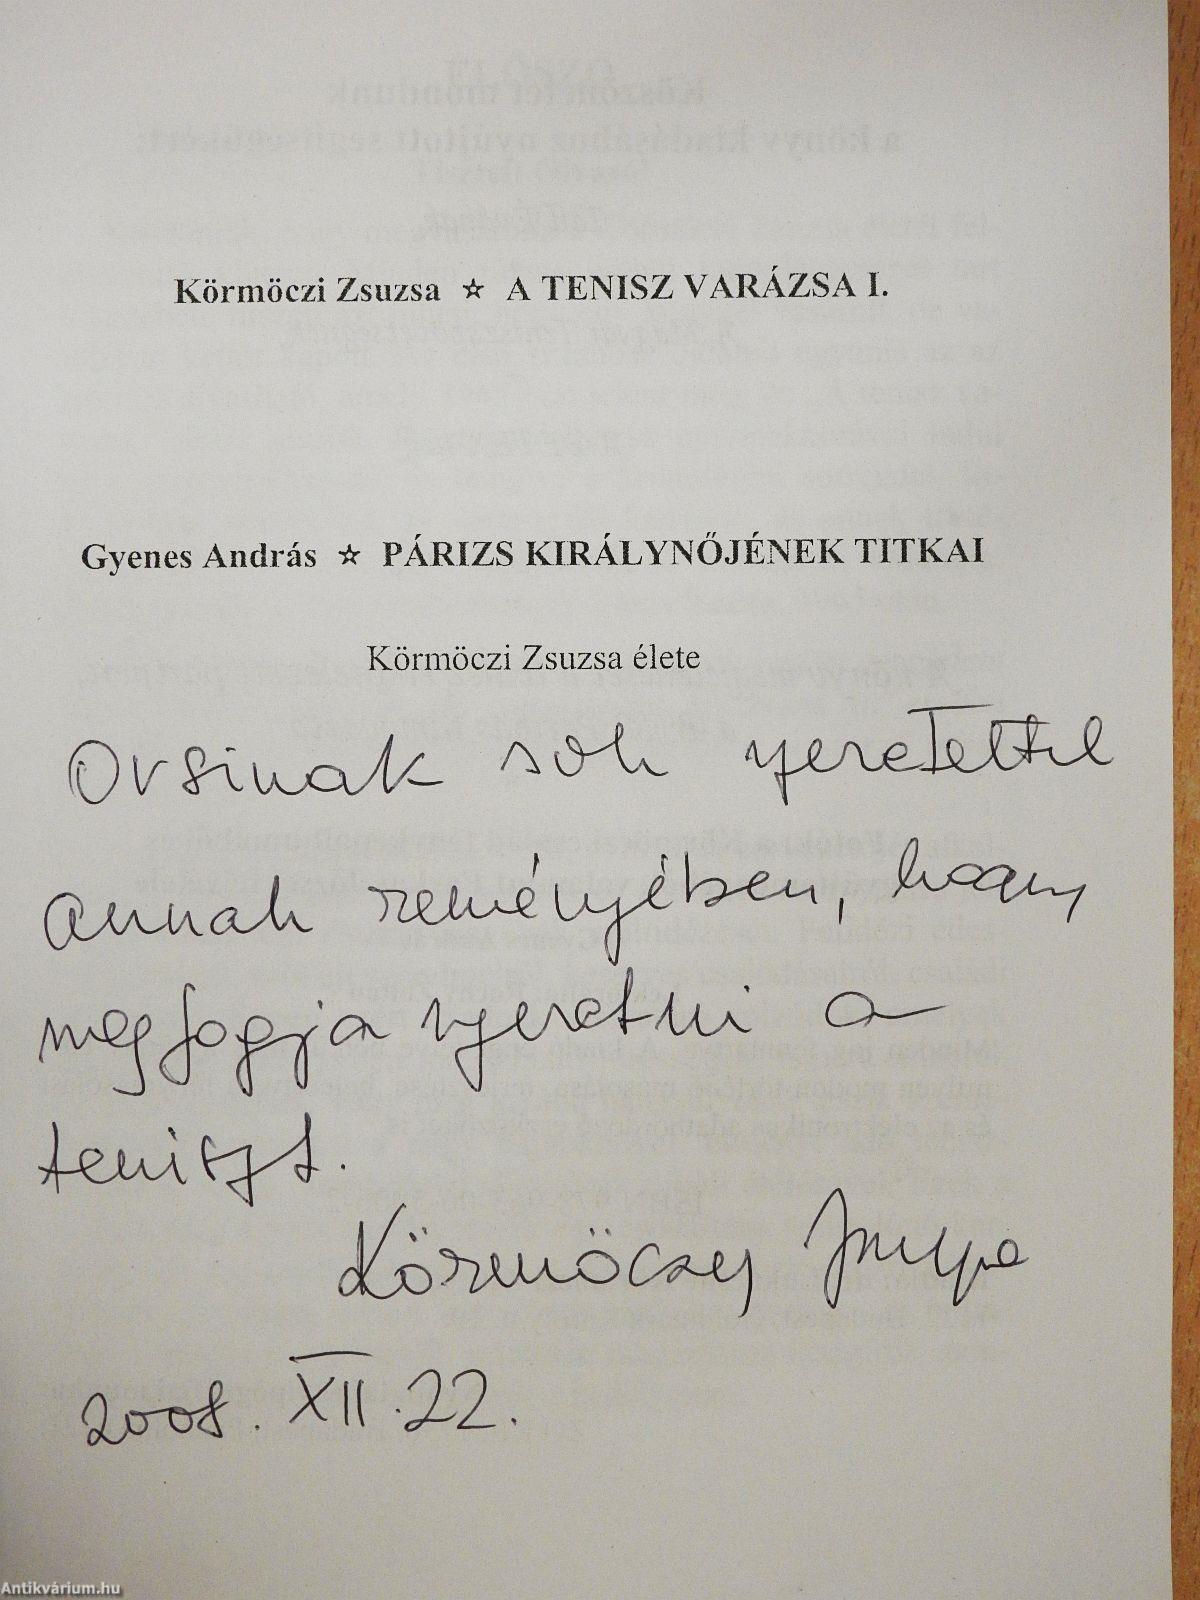 Körmöczi Zsuzsa ☆ A TENISZ VARÁZSA I.
Gyenes András ☆ PÁRIZS KIRÁLYNŐJÉNEK TITKAI
Körmöczi Zsuzsa élete
Orsinak sok szeretettel
annak reményében, hogy
megfogja szeretni a
teniszt.
Körmöczy Zsuzsa
2008. XII. 22.
Antikvárium.hu